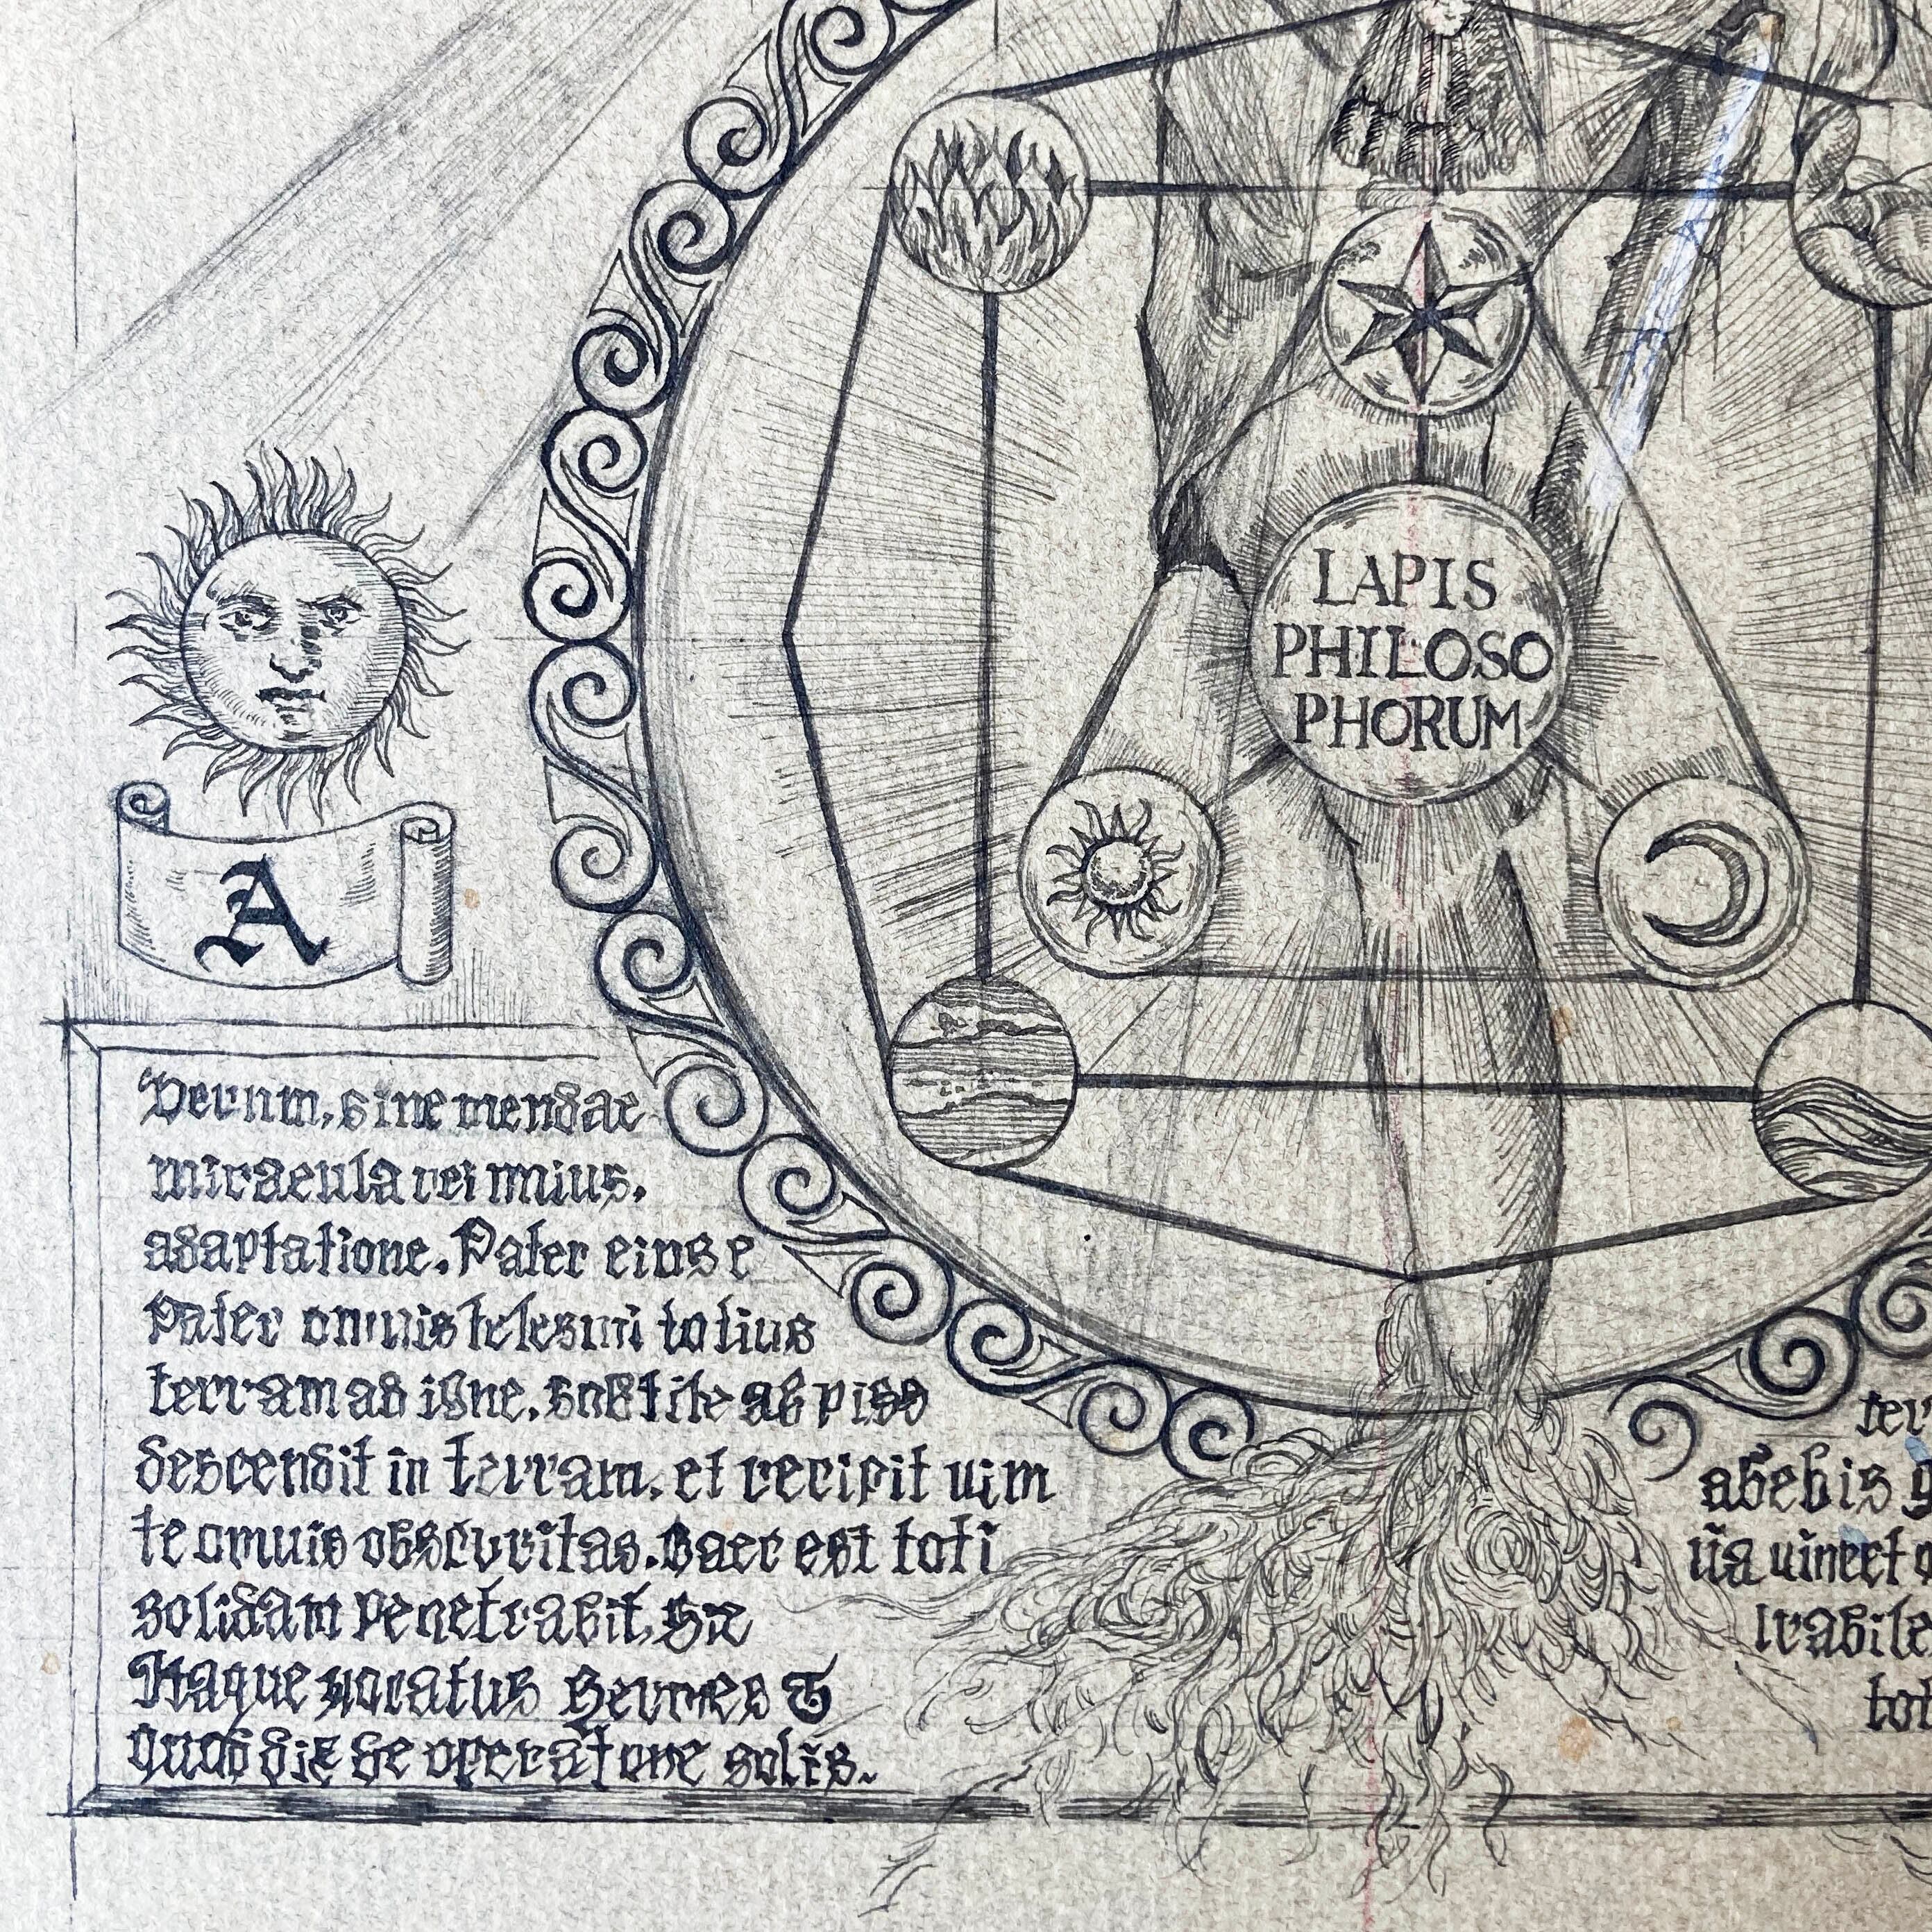 LAPIS
PHILOSO
PHORUM
A
Verum, sine mendac
miracula rei unius.
adaptatione. Pater eius e
Pater omnis telesmi totius
terram ab igne. subtile ab spiss
descendit in terram. et recipit uim
te omnis obscuritas. Haec est toti
solidam penetrabit. Sic
Itaque uocatus Hermes T
quod dix de operatione solis.
ter
abebis g
ua uincet o
trabile
tot